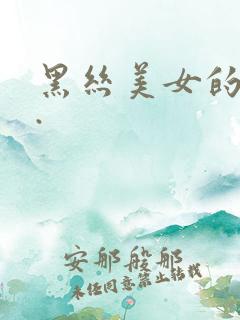 黑丝美女的
.
安那般那
未经同意禁止转载